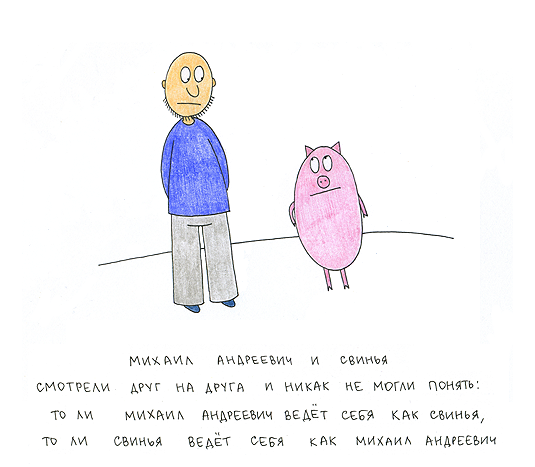 МИХАИЛ АНДРЕЕВИЧ И СВИНЬЯ
СМОТРЕЛИ ДРУГ НА ДРУГА И НИКАК НЕ МОГЛИ ПОНЯТЬ:
ТО ЛИ МИХАИЛ АНДРЕЕВИЧ ВЕДЁТ СЕБЯ КАК СВИНЬЯ,
ТО ЛИ СВИНЬЯ ВЕДЁТ СЕБЯ КАК МИХАИЛ АНДРЕЕВИЧ